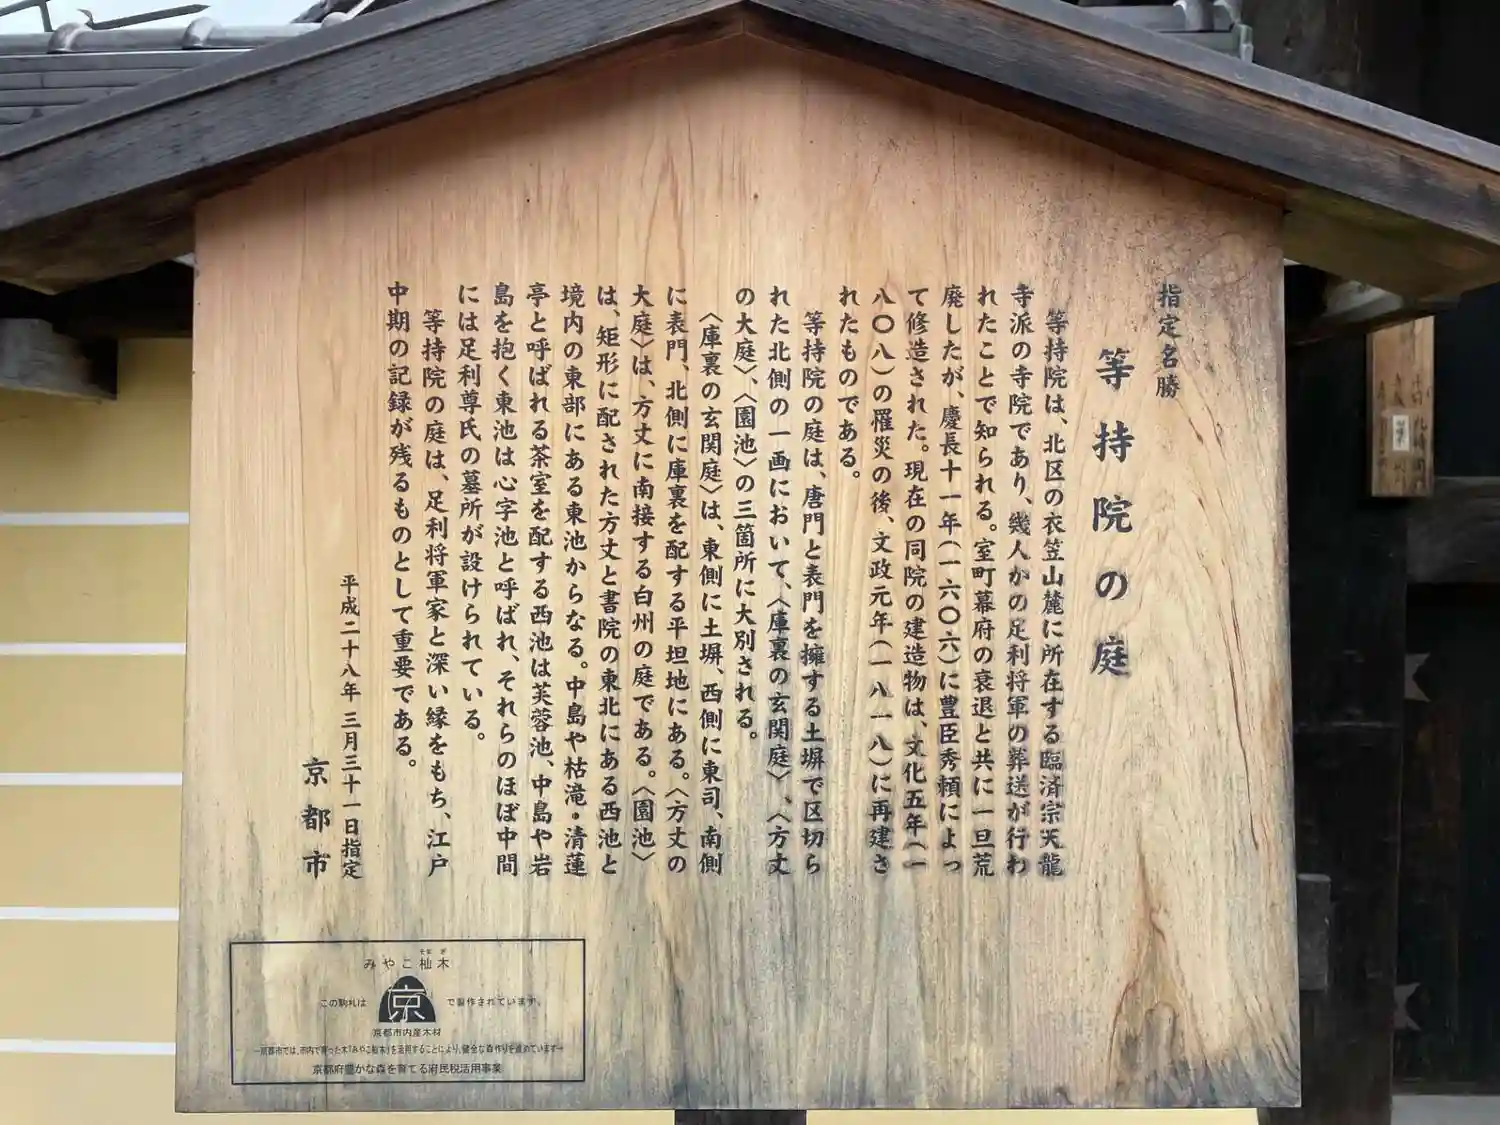 指定名勝
等持院の庭
等持院は、北区の衣笠山麓に所在する臨済宗天龍
寺派の寺院であり、幾人かの足利将軍の葬送が行わ
れたことで知られる。室町幕府の衰退と共に一旦荒
廃したが、慶長十一年(一六〇六)に豊臣秀頼によっ
て修造された。現在の同院の建造物は、文化五年(一
八〇八)の罹災の後、文政元年(一八一八)に再建さ
れたものである。
等持院の庭は、唐門と表門を擁する土塀で区切ら
れた北側の一画において、〈庫裏の玄関庭〉、〈方丈
の大庭〉、〈園池〉の三箇所に大別される。
〈庫裏の玄関庭〉は、東側に土塀、西側に東司、南側
に表門、北側に庫裏を配する平坦地にある。〈方丈の
大庭〉は、方丈に南接する白州の庭である。〈園池〉
は、矩形に配された方丈と書院の東北にある西池と
境内の東部にある東池からなる。中島や枯滝・清蓮
亭と呼ばれる茶室を配する西池は芙蓉池、中島や岩
島を抱く東池は心字池と呼ばれ、それらのほぼ中間
には足利尊氏の墓所が設けられている。
等持院の庭は、足利将軍家と深い縁をもち、江戸
中期の記録が残るものとして重要である。
平成二十八年三月三十一日指定
京都市
みやこ杣木
この駒札は
京
で製作されています。
京都市内産木材
－京都市では、市内で育った木「みやこ杣木」を活用することにより、健全な森作りを進めています－
京都府豊かな森を育てる府民税活用事業